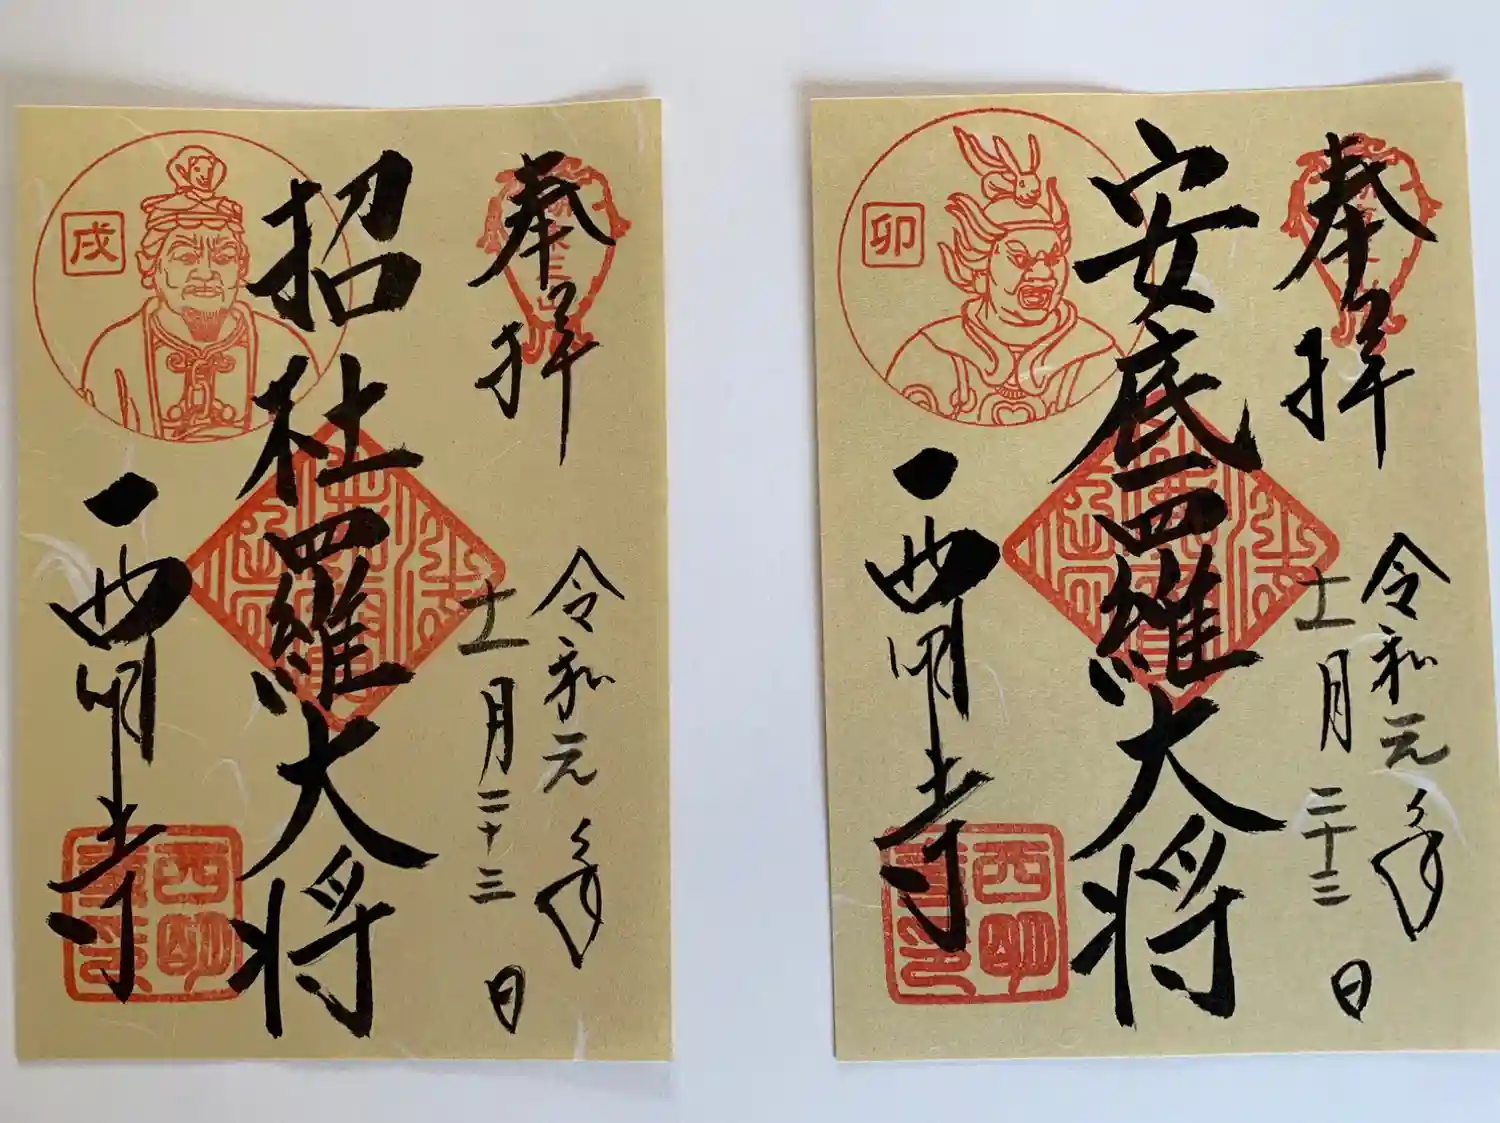 奉拝
令和元年
十一月二十三日
招杜羅大将
戌
西明寺
西明
奉拝
令和元年
十一月二十三日
安底羅大将
卯
西明寺
西明